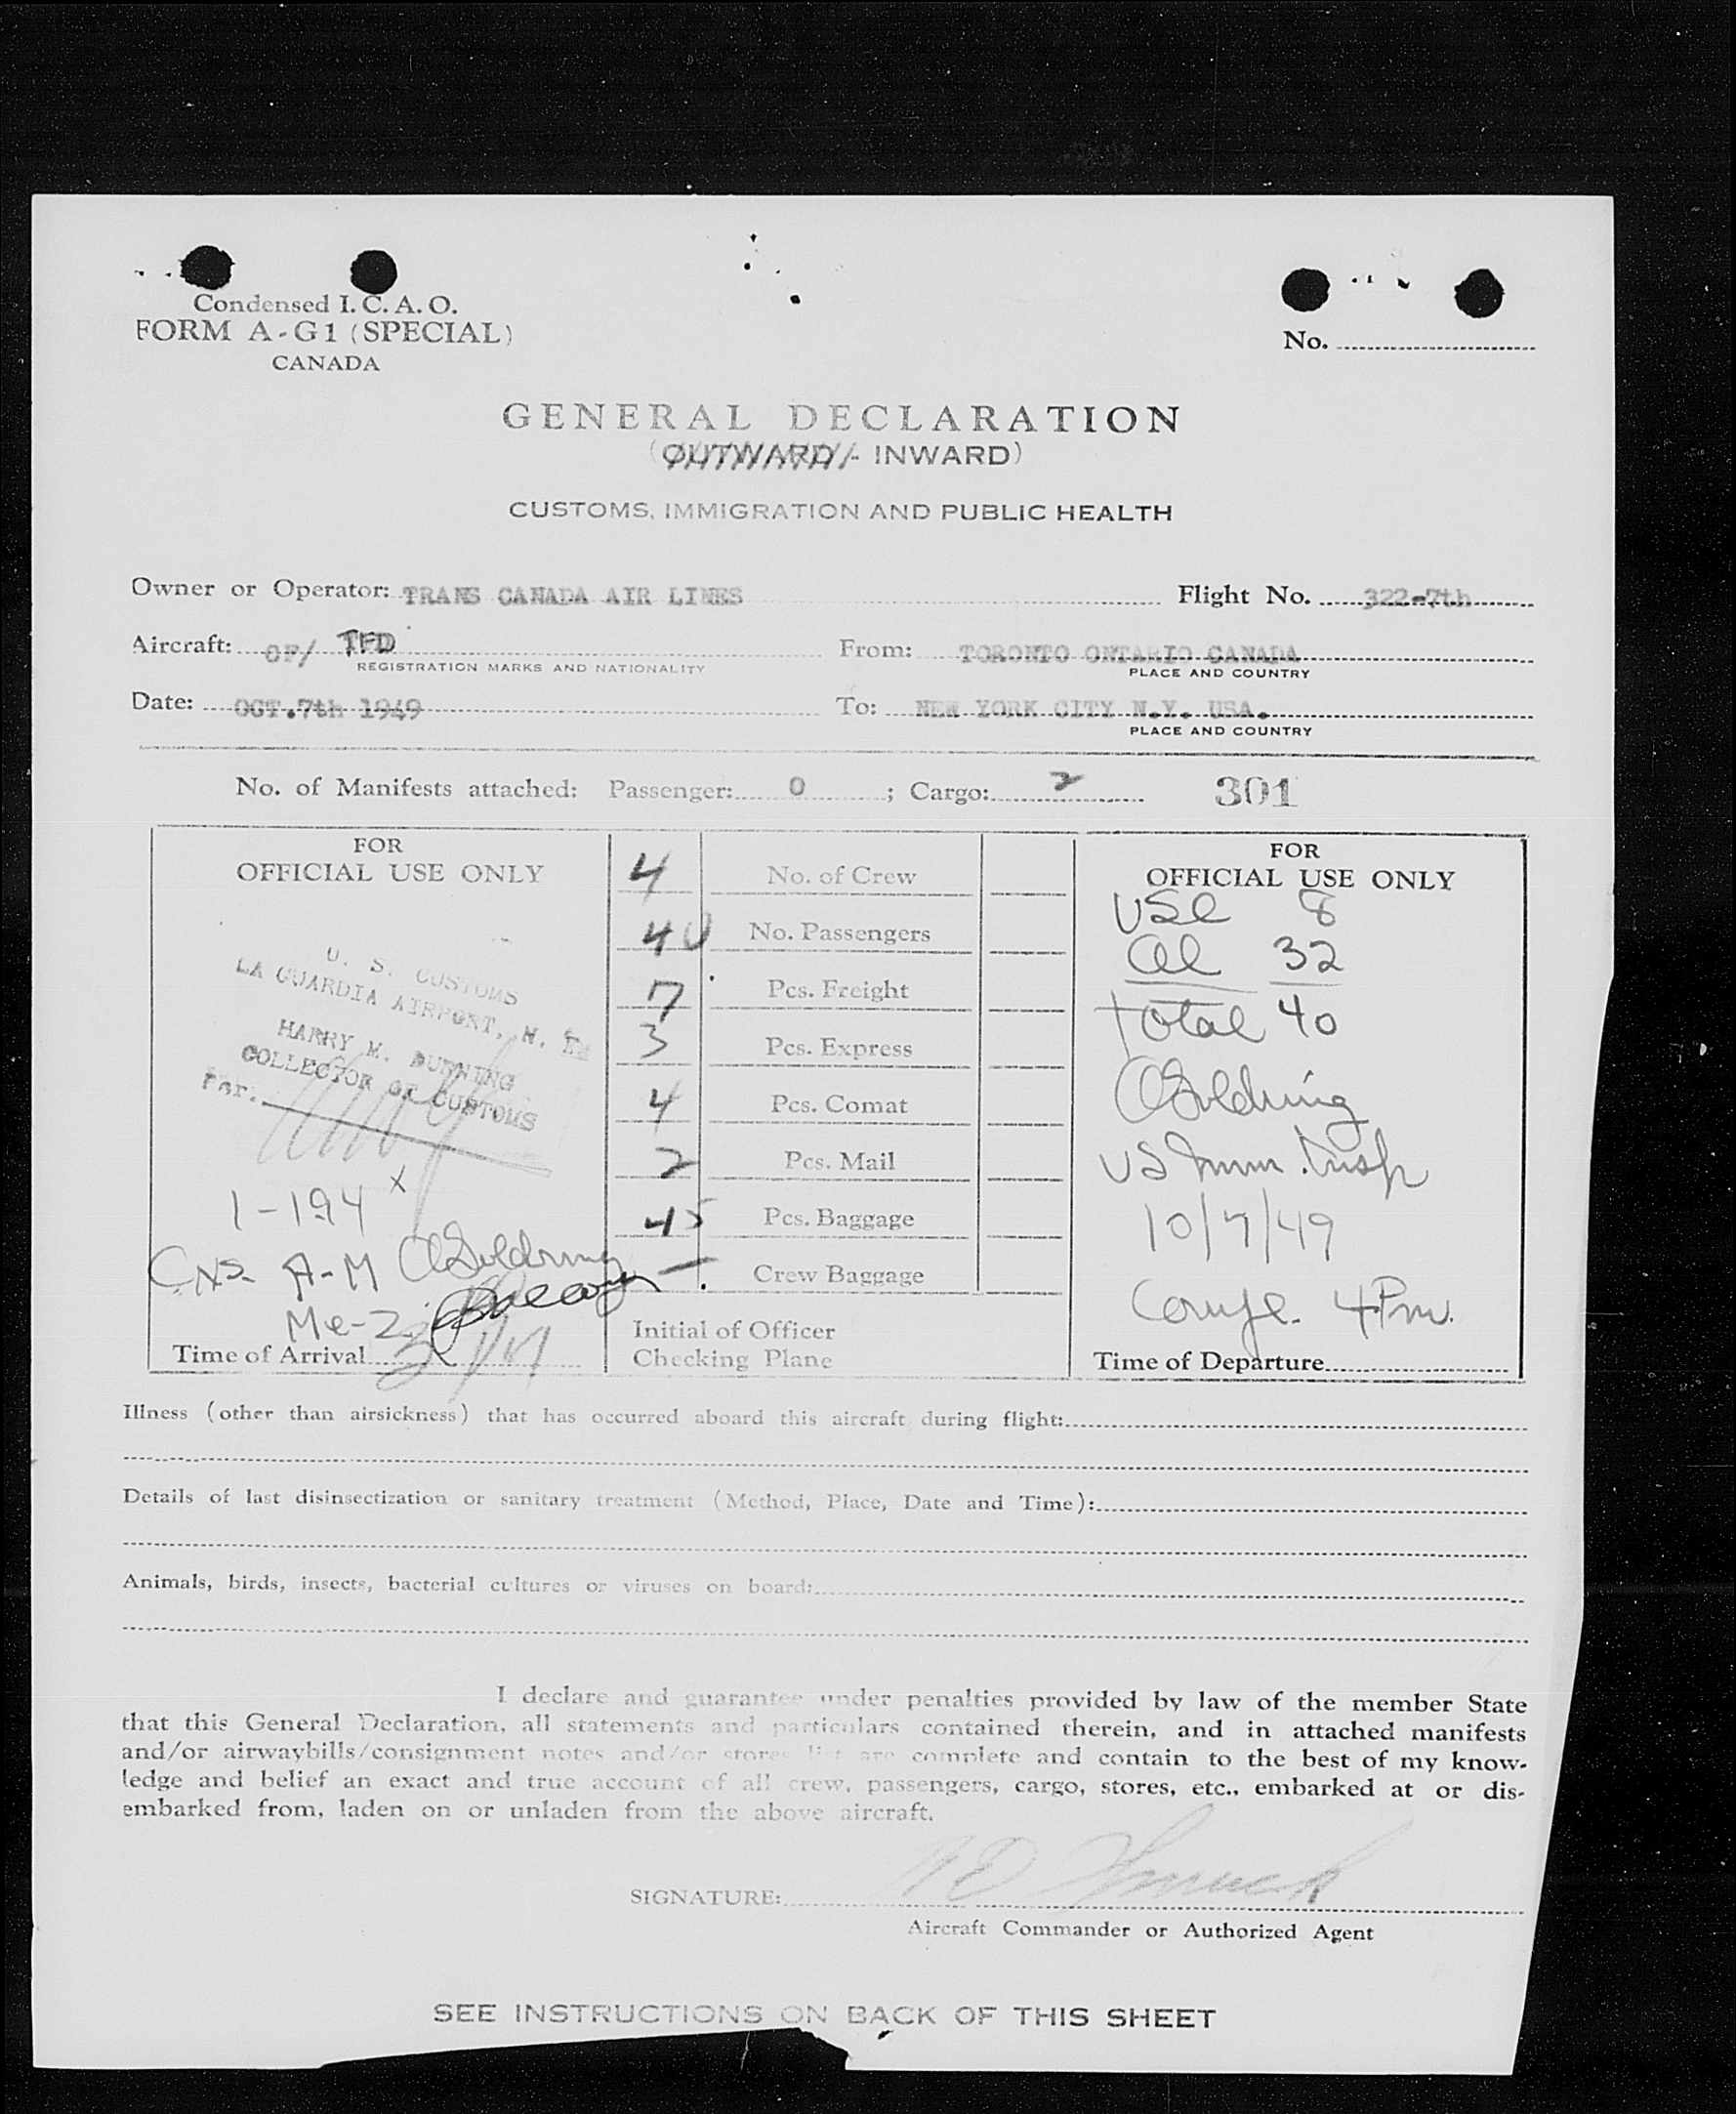 Condensed I. C. A. O.
FORM A-G1 (SPECIAL)
CANADA
No.
GENERAL DECLARATION
(OUTWARD/- INWARD)
CUSTOMS, IMMIGRATION AND PUBLIC HEALTH
Owner or Operator: TRANS CANADA AIR LINES Flight No. 322-7th
Aircraft: CF/ TFD From: TORONTO ONTARIO CANADA
REGISTRATION MARKS AND NATIONALITY PLACE AND COUNTRY
Date: OCT.7th 1949 To: NEW YORK CITY N.Y. USA.
PLACE AND COUNTRY
No. of Manifests attached: Passenger: 0 ; Cargo: 2 301
FOR
OFFICIAL USE ONLY
U. S. CUSTOMS
LA GUARDIA AIRPORT, N. Y.
HARRY M. DURNING
COLLECTOR OF CUSTOMS
Per.
1-194 x
A-M
Time of Arrival
4 No. of Crew
40 No. Passengers
7 Pcs. Freight
3 Pcs. Express
4 Pcs. Comat
2 Pcs. Mail
45 Pcs. Baggage
— Crew Baggage
Initial of Officer
Checking Plane
FOR
OFFICIAL USE ONLY
USC 8
al 32
total 40
Goldring
US Imm. Insp
10/7/49
4 Pm.
Time of Departure
Illness (other than airsickness) that has occurred aboard this aircraft during flight:
Details of last disinsectization or sanitary treatment (Method, Place, Date and Time):
Animals, birds, insects, bacterial cultures or viruses on board:
I declare and guarantee under penalties provided by law of the member State
that this General Declaration, all statements and particulars contained therein, and in attached manifests
and/or airwaybills/consignment notes and/or stores list are complete and contain to the best of my know-
ledge and belief an exact and true account of all crew, passengers, cargo, stores, etc., embarked at or dis-
embarked from, laden on or unladen from the above aircraft.
SIGNATURE:
Aircraft Commander or Authorized Agent
SEE INSTRUCTIONS ON BACK OF THIS SHEET